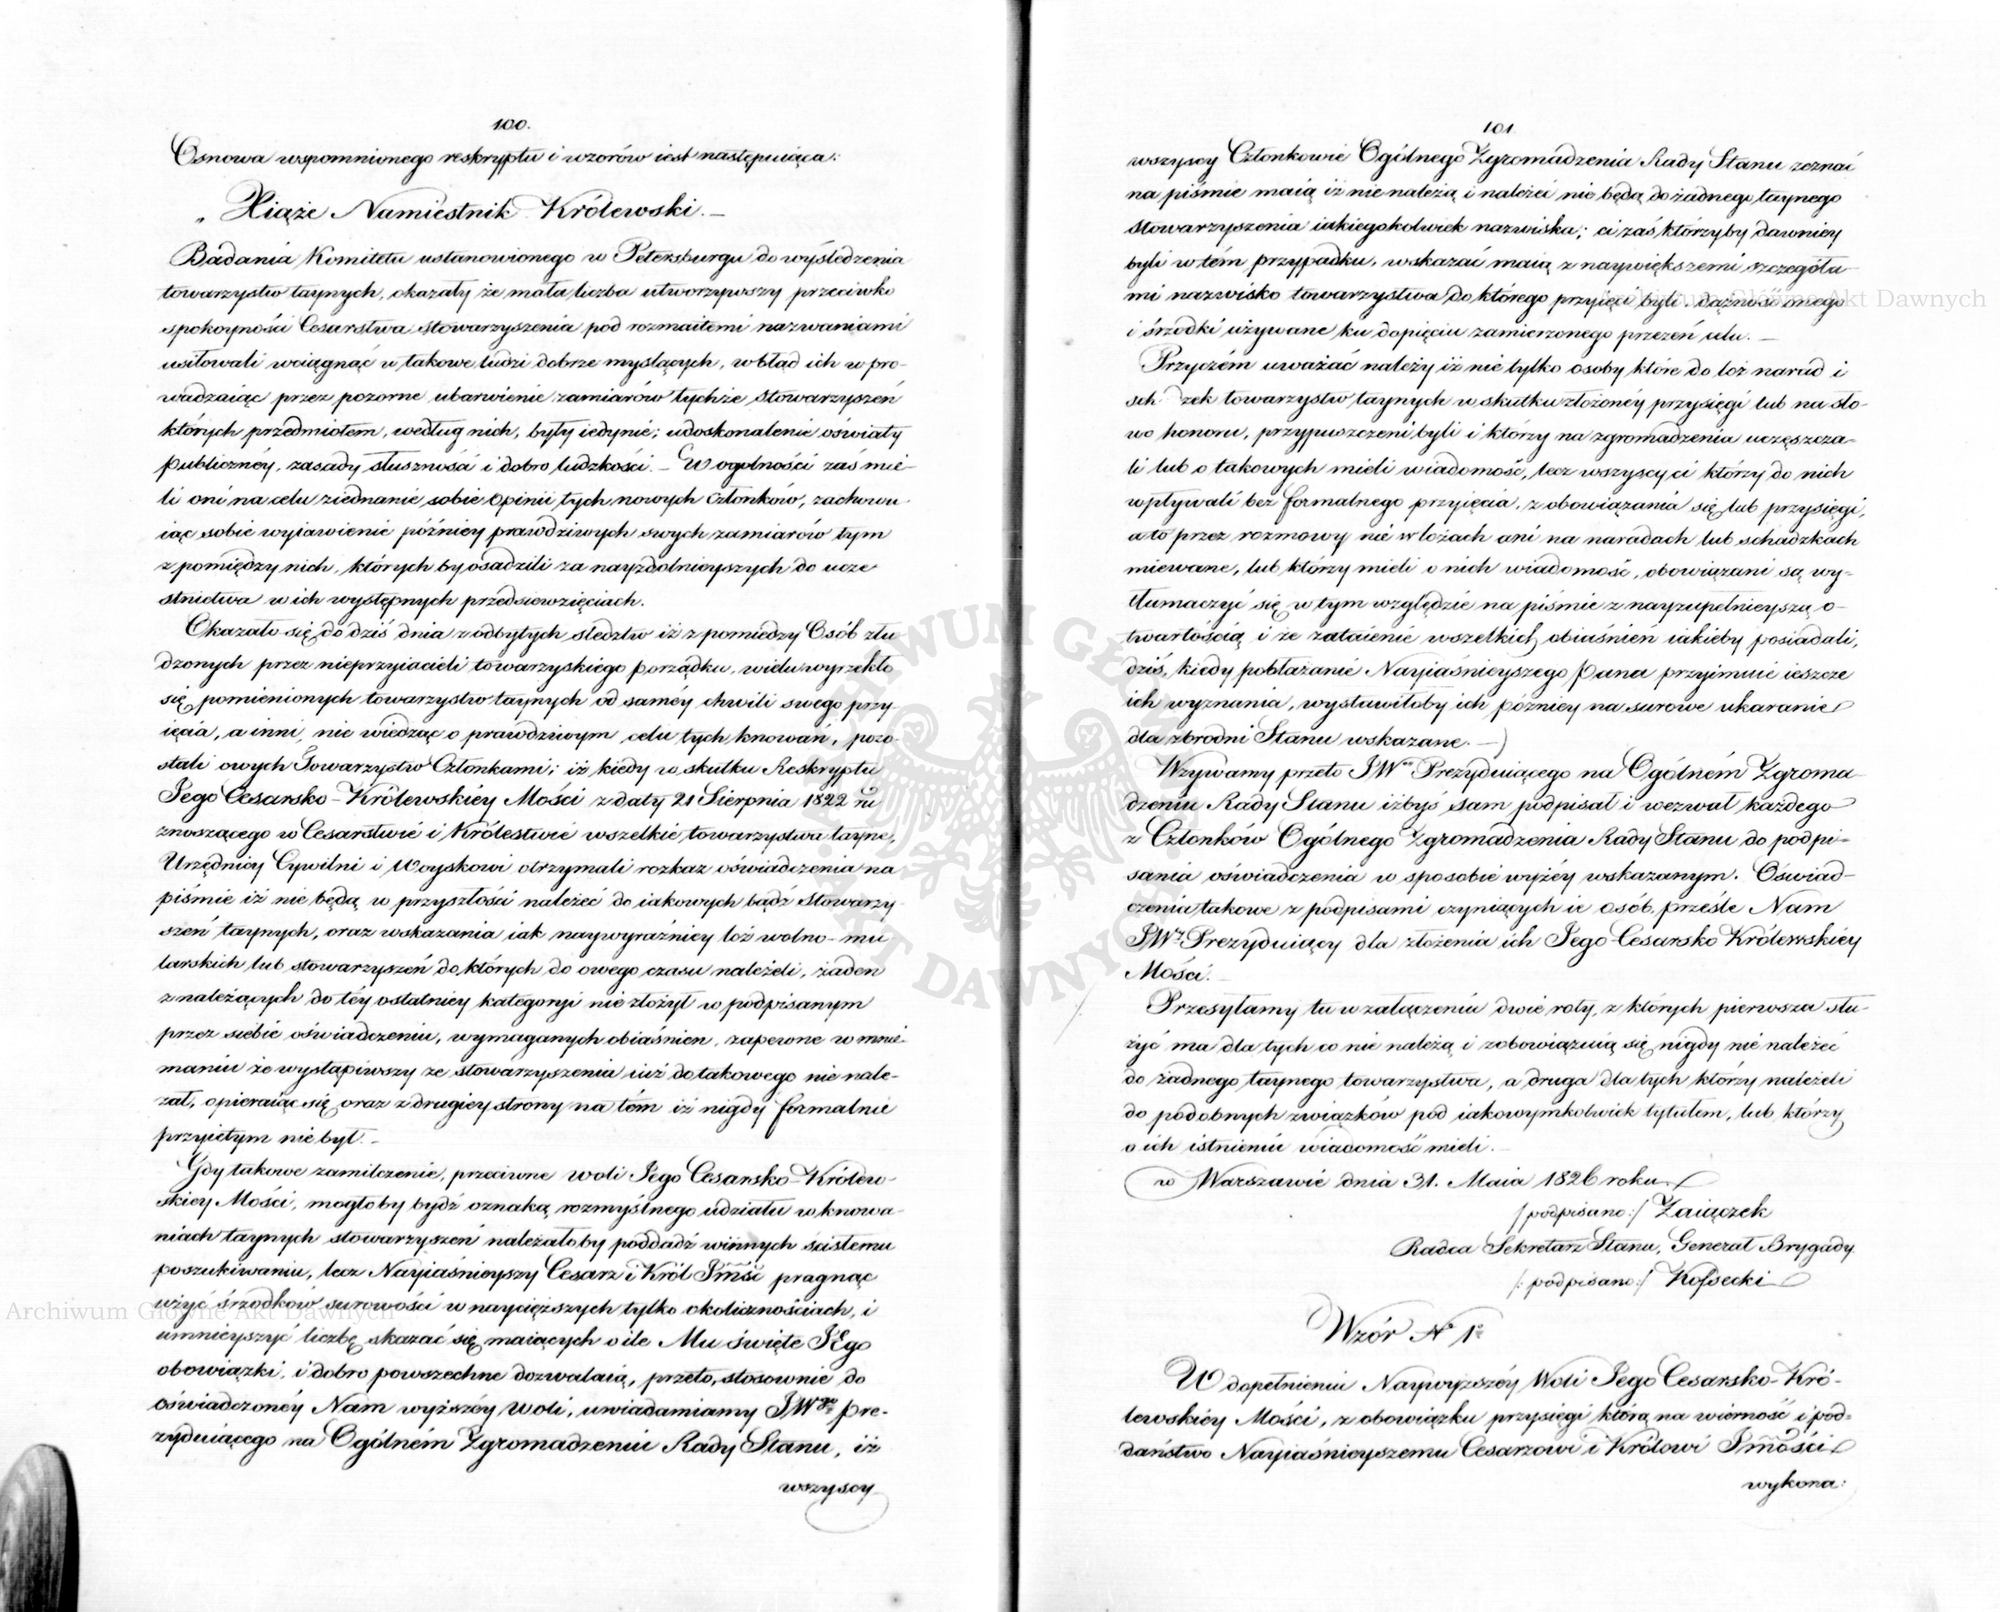 100.
Osnowa wspomnionego reskryptu i wzorów iest następuiąca:
„ Xiąże Namiestnik Królewski. —
Badania Komitetu ustanowionego w Petersburgu do wyśledzenia
towarzystw taynych, okazały że mała liczba utworzywszy przeciwko
spokoyności Cesarstwa stowarzyszenia pod rozmaitemi nazwaniami
usiłowali wciągnąć w takowe ludzi dobrze myślących, w błąd ich wpro-
wadzaiąc przez pozorne ubarwienie zamiarów tychże stowarzyszeń
których przedmiotem, według nich, były iedynie; udoskonalenie oświaty
publicznéy, zasady słuszności i dobro ludzkości. — W ogólności zaś mie-
li oni na celu ziednanie sobie opinii tych nowych członków, zachowu
iąc sobie wyiawienie późniey prawdziwych swych zamiarów tym
z pomiędzy nich, których by osadzili za nayzdolnieyszych do ucze
stnictwa w ich występnych przedsięwzięciach.
Okazało się do dziś dnia z odbytych śledztw iż z pomiędzy Osób złu
dzonych przez nieprzyiacieli towarzyskiego porządku, wielu wyrzekło
się pomienionych towarzystw taynych od saméy chwili swego przy-
ięcia, a inni, nie wiedząc o prawdziwym celu tych knowań, pozo-
stali owych Towarzystw Członkami; iż kiedy w skutku Reskryptu
Jego Cesarsko-Królewskiéy Mości z daty 21 Sierpnia 1822 ru
znoszącego w Cesarstwie i Królestwie wszelkie towarzystwa tayne,
Urzędnicy Cywilni i Woyskowi otrzymali rozkaz oświadczenia na
piśmie iż nie będą w przyszłości należeć do iakowych bądź stowarzy-
szeń taynych, oraz wskazania iak naywyraźniey loż wolno-mu
larskich lub stowarzyszeń do których do owego czasu należeli, żaden
z należących do téy ostatniey kategoryi nie złożył w podpisanym
przez siebie oświadczeniu, wymaganych obiaśnień, zapewne w mnie-
maniu że wystąpiwszy ze stowarzyszenia iuż do takowego nie nale-
żał, opieraiąc się oraz z drugiey strony na tém iż nigdy formalnie
przyiętym nie był. —
Gdy takowe zamilczenie, przeciwne woli Jego Cesarsko-Królew-
skiey Mości, mogłoby bydź oznaką rozmyślnego udziału w knowa-
niach taynych stowarzyszeń należałoby poddadź winnych ścisłemu
poszukiwaniu, lecz Nayiaśnieyszy Cesarz i Król Jmść pragnąc
użyć śrzodków surowości w naycięższych tylko okolicznościach, i
umnieyszyć liczbę skazać się maiących o ile Mu święte JEgo
obowiązki, i dobro powszechne dozwalaią, przeto, stosownie do
oświadczonéy Nam wyższéy woli, uwiadamiamy JWgo Pre-
zyduiącego na Ogólném Zgromadzeniu Rady Stanu, iż
wszyscy
101
wszyscy Członkowie Ogólnego Zgromadzenia Rady Stanu zeznać
na piśmie maią iż nie należą i należeć nie będą do żadnego taynego
stowarzyszenia iakiegokolwiek nazwiska; ci zaś którzyby dawniey
byli w tém przypadku, wskazać maią z naywiększemi szczegóła-
mi nazwisko towarzystwa do którego przyięci byli, dążność onego
i śrzodki używane ku dopięciu zamierzonego przezeń celu. —
Przyczém uważać należy iż nie tylko osoby które do loż narad i
sch zek towarzystw taynych w skutku złożonéy przysięgi lub na sło-
wo honoru, przypuszczeni byli i którzy na zgromadzenia uczęszcza-
li lub o takowych mieli wiadomość, lecz wszyscy ci którzy do nich
wpływali bez formalnego przyięcia, zobowiązania się lub przysięgi,
a to przez rozmowy nie w lożach ani na naradach lub schadzkach
miewane, lub którzy mieli o nich wiadomość, obowiązani są wy-
tłumaczyć się w tym względzie na piśmie z nayzupełnieyszą o-
twartością, i że zataienie wszelkich obiaśnień iakieby posiadali,
dziś, kiedy pobłażanie Nayiaśnieyszego Pana przyimuie ieszcze
ich wyznania, wystawiłoby ich późniey na surowe ukaranie
dla zbrodni Stanu wskazane. —
Wzywamy przeto JWgo Prezyduiącego na Ogólném Zgroma-
dzeniu Rady Stanu iżbyś sam podpisał i wezwał każdego
z Członków Ogólnego Zgromadzenia Rady Stanu do podpi-
sania oświadczenia w sposobie wyżéy wskazanym. Oświad-
czenia takowe z podpisami czyniących ie osób prześle Nam
JWy Prezyduiący dla złożenia ich Jego Cesarsko Królewskiéy
Mości. —
Przesyłamy tu w załączeniu dwie roty, z których pierwsza słu-
żyć ma dla tych co nie należą i zobowiązuią się nigdy nie należeć
do żadnego taynego towarzystwa, a druga dla tych którzy należeli
do podobnych związków pod iakowymkolwiek tytułem, lub którzy
o ich istnieniu wiadomość mieli. —
w Warszawie dnia 31. Maia 1826 roku
/podpisano:/ Zaiączek
Radca Sekretarz Stanu, Generał Brygady
/:podpisano:/ Kossecki
Wzór No 1o
W dopełnieniu Naywyższéy Woli Jego Cesarsko-Kró-
lewskiéy Mości, z obowiązku przysięgi którą na wierność i pod-
daństwo Nayiaśnieyszemu Cesarzowi i Królowi Jmości
wykona:
Archiwum Główne Akt Dawnych
Archiwum Główne Akt Dawnych
ARCHIWUM GŁÓWNE AKT DAWNYCH